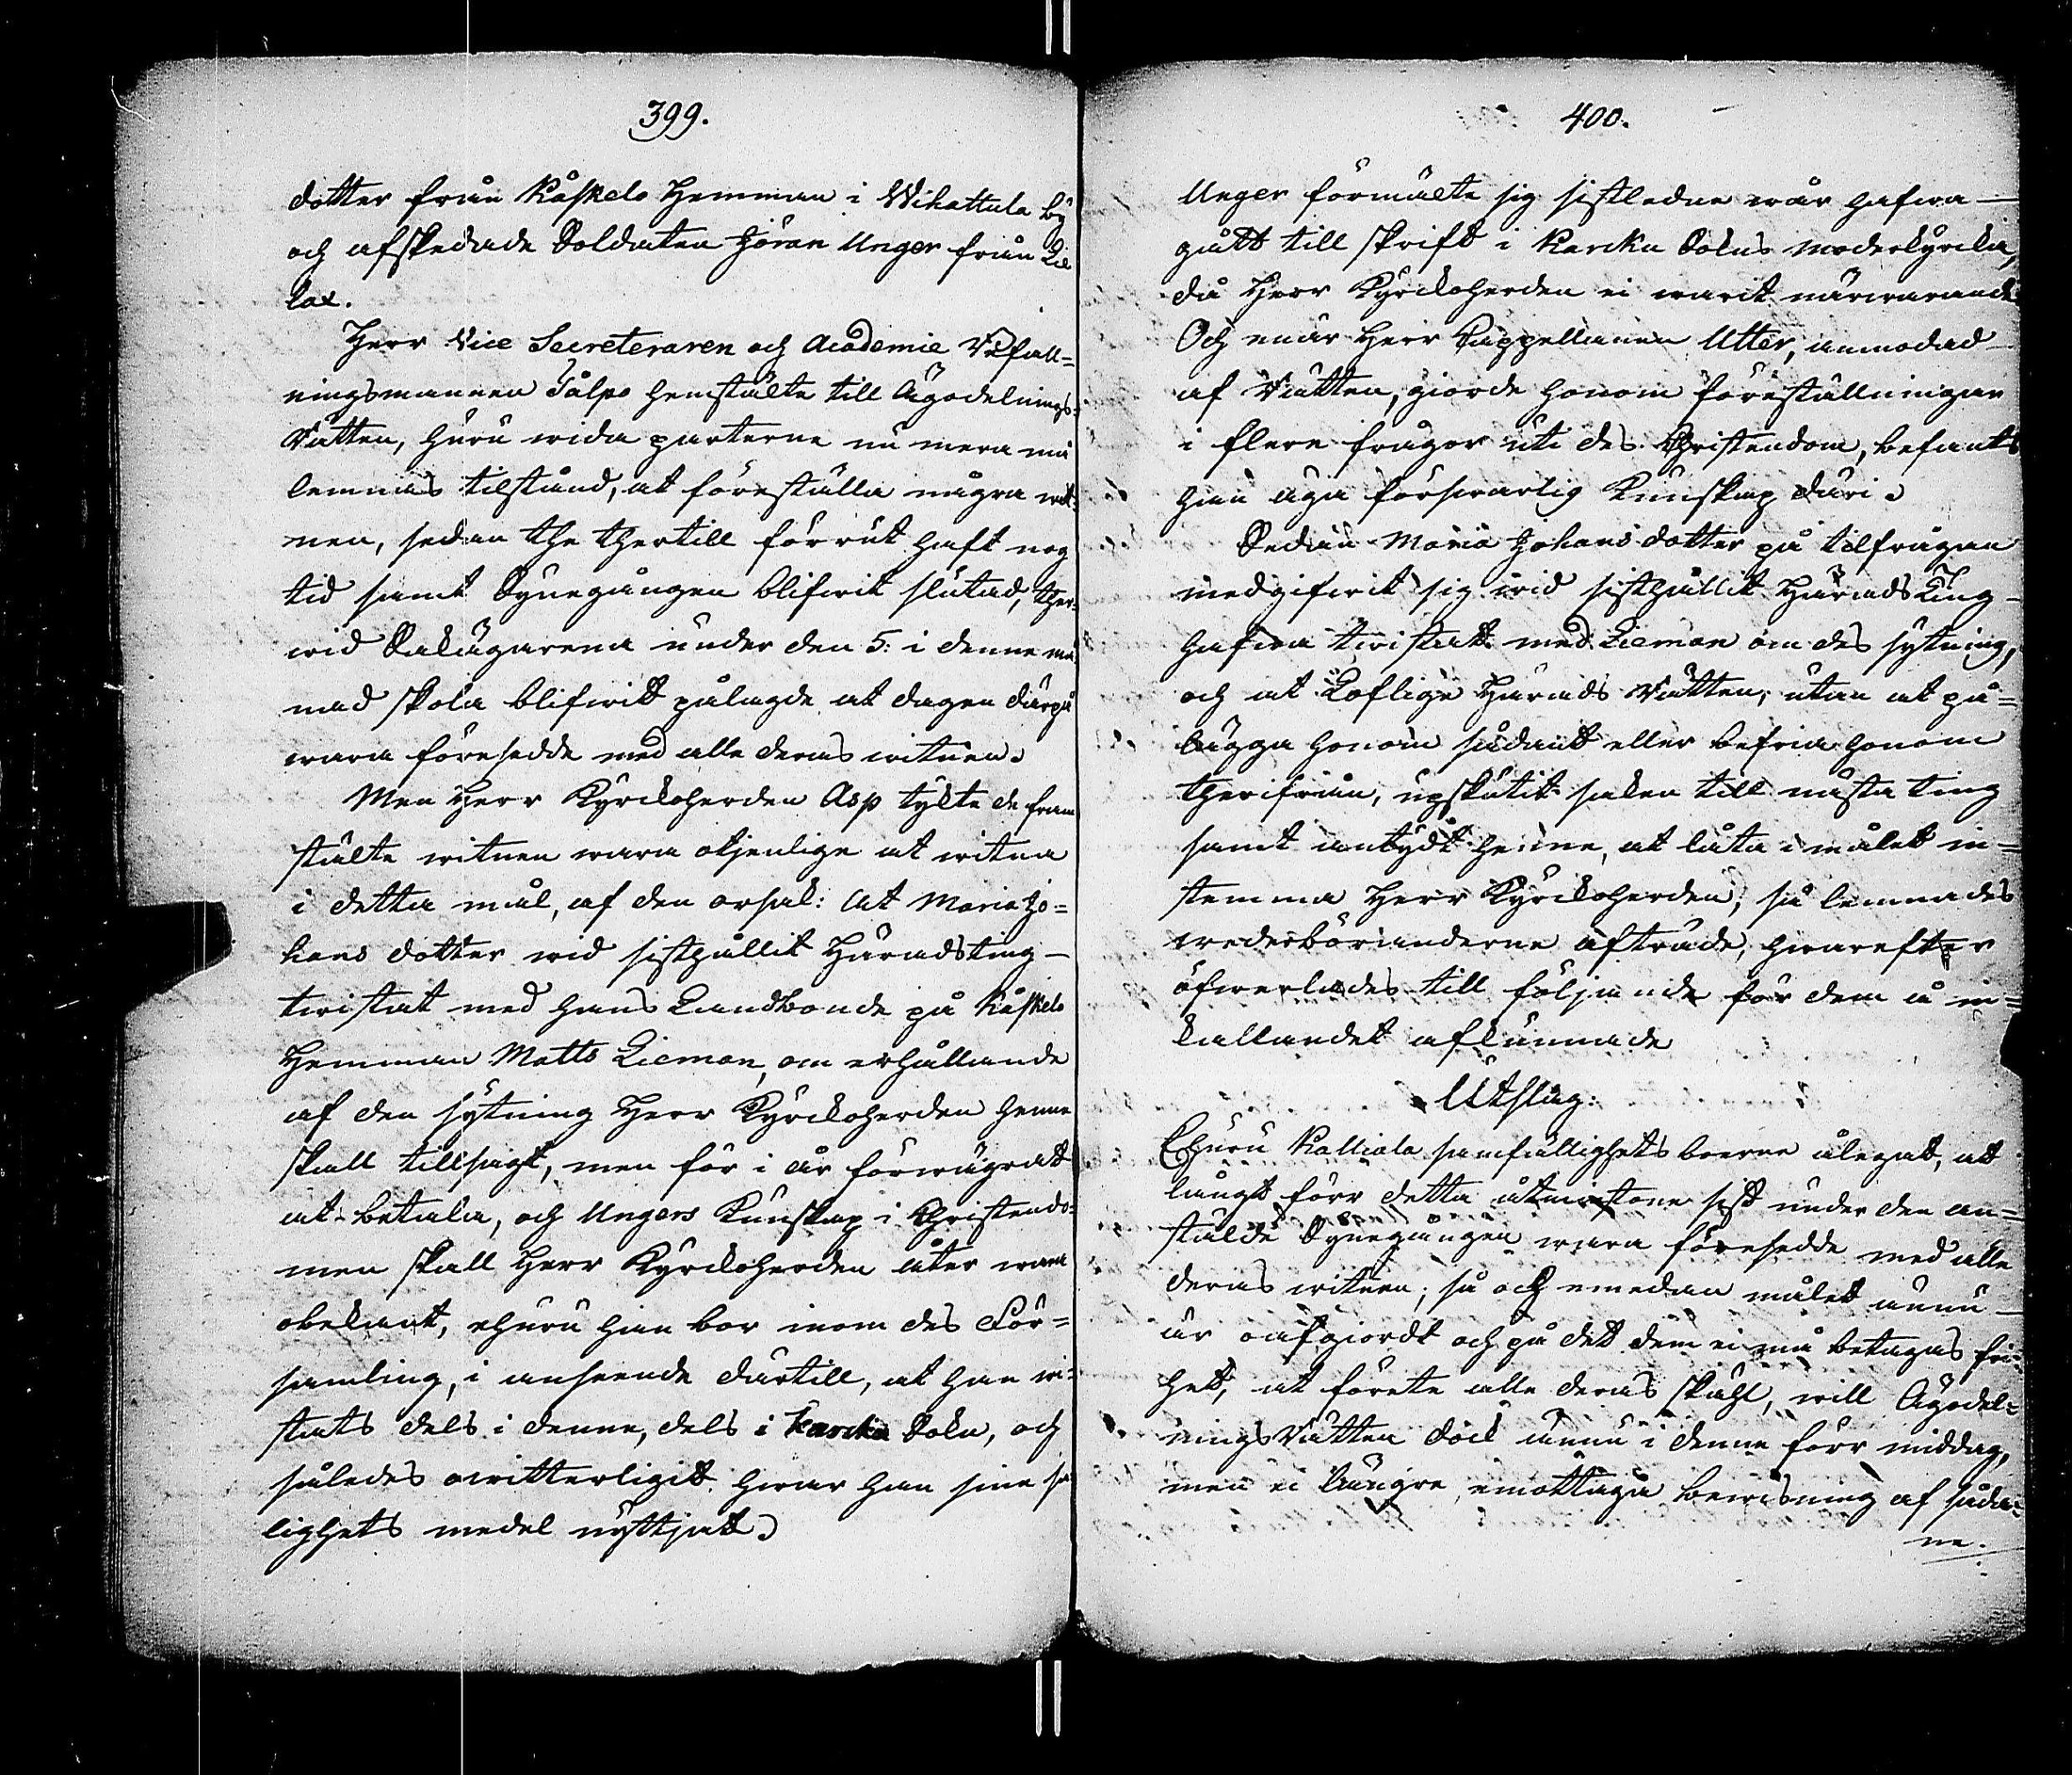 399.
dotter från Kåskelo Hemman i Wihattula by
och afskedade Soldaten Jöran Unger från Lie
lax.
Herr Vice Secreteraren och Academie Befall=
ningsmannen Tålpo hemstälte till Ägodelnings=
Rätten, huru wida parterne nu mera må
lemnas tilstånd, at föreställa några wit=
nen, sedan the thertill förrut haft nog
tid samt Synegången blifwit slutad, ther=
wid Sakägarena under den 5: i denne må
nad skola blifwit pålagde at dagen därpå
wara försedde med alle deras witnen.
Men Herr Kyrckoherden Asp tykte de fram
stälte witnen wara otjenlige at witna
i detta mål, af den orsak: at Maria Jo=
hans dotter wid sisthållit Häradsting
twistat med hans Landbonde på Kåskelo
Hemman Matts Lieman, om erhållande
af den sytning Herr Kyrckoherden henne
skall tillsagt, men för i år förwägrat
at betala, och Ungers Kunskap i Christendo=
men skall Herr Kyrckoherden åter wara
obekant, ehuru han bor inom des För=
samling, i anseende därtill, at han wi=
stats dels i denne, dels i Karcku Sokn, och
således owitterligit hwar han sine sa
lighets medel nyttjat.
400.
Unger förmälte sig sistledne wår hafwa
gått till skrift i Karcku Sokns moderkyrcka,
då Herr Kyrckoherden ei warit närwarande
Och enär Herr Cappellanen Utter, anmodad
af Rätten, giorde honom föreställningar
i flere frågor uti des Christendom, befants
han äga förswarlig Kunskap däri.
Sedan Maria Johans dotter på tilfrågan
medgifwit sig wid sisthållit Härads Ting
hafwa twistat med Lieman om des sytning,
och at Loflige Härads Rätten, utan at på=
lägga honom sådant eller befria honom
therifrån, upskutit saken till nästa Ting
samt antydt henne, at låta i målet in=
stemma Herr Kyrckoherden; så lemnades
wederböranderne afträde, hwarefter
öfwerlades till följande för dem å in=
kallandet afkunnade
Utslag:
Ehuru Kalliala samfällighets boerne ålegat, at
långt förr detta åtminstone sist under den an=
stälde Synegången wara försedde med alle
deras witnen; så och emedan målet ännu
är oafgiordt och på det dem ei må betagas fri=
het, at förete alle deras skähl, will Ägodel=
nings Rätten dock ännu i denne förr middag,
men ei längre, emottaga bewisning af såda=
ne.